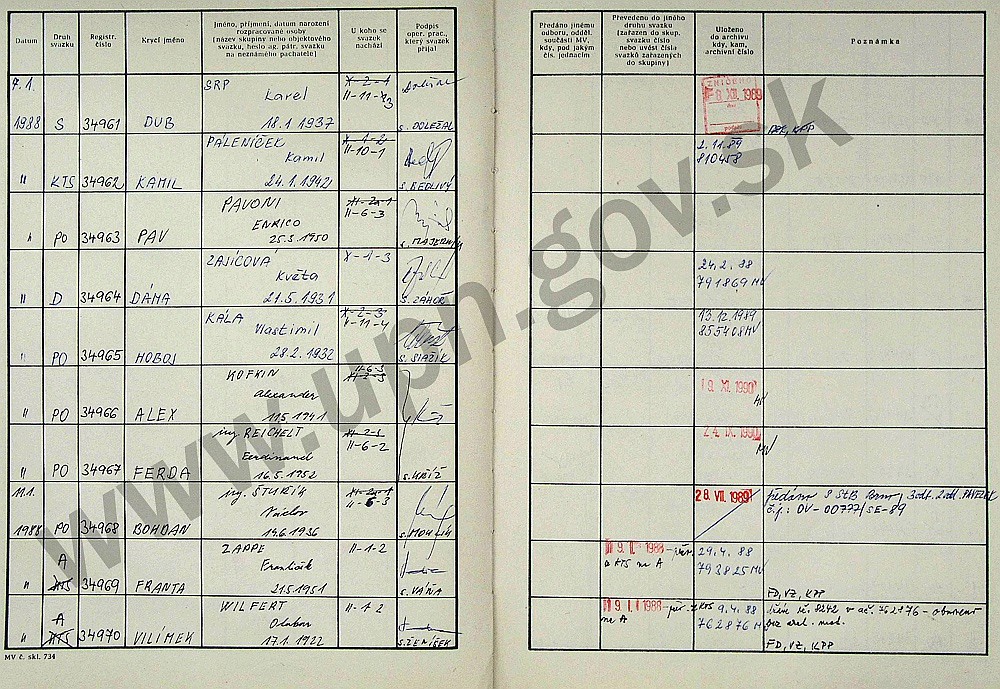 Datum
Druh svazku
Registr. číslo
Krycí jméno
Jméno, příjmení, datum narození rozpracované osoby (název skupiny nebo objektového svazku, heslo ag. pátr. svazku na neznámého pachatele)
U koho se svazek nachází
Podpis oper. prac., který svazek přijal
Předáno jinému odboru, odděl. součásti MV, kdy, pod jakým čís. jednacím
Převedeno do jiného druhu svazku (zařazen do skup. svazku číslo nebo uvést čísla svazků zařazených do skupiny)
Uloženo do archivu kdy, kam, archivní číslo
Poznámka
7.1. SRP X-2-1
Karel II-11-13
1988 S 34961 DUB 18.1 1937 s. DOLEŽAL
8. XII. 1989
PÁLENÍČEK X-1-2
Kamil II-10-1
" KTS 34962 KAMIL 24.1.1942 s. BEDLIVÝ
2.11.89
810458
PAVONI
ENRICO II-6-3
" PO 34963 PAV 25.3.1950
ZAJÍCOVÁ X-1-3
Květa
" D 34964 DÁMA 21.5.1931 s. ZÁHOŘ
24.2.88
791869 MV
KÁLA X-2-3
Vlastimil X-11-4
" PO 34965 HOBOJ 28.2.1932
13.12.1989
855408 MV
KOFKIN II-6-3
Alexander
" PO 34966 ALEX 11.5.1941
9. XI. 1990
MV
ing. REICHELT
Ferdinand II-6-2
" PO 34967 FERDA 16.5.1952 s. KŘÍŽ
24. IX. 1990
MV
11.1. ing. ŠTURÍK
Václav II-6-3
1988 PO 34968 BOHDAN 14.6.1936
28. VII. 1989
předáno S StB Brno, 3 odb. 2 odd. PAVELEK
č.j.: OV-00777/SE-89
A ZAPPE II-1-2
František
" KTS 34969 FRANTA 21.5.1951 s. VÁŇA
9. 1988
a KTS na A
29.4.88
793825 MV
FD, VZ, KPP
A WILFERT II-1 2
Otakar
" KTS 34970 VILÍMEK 17.1.1922 s. ŽENÍŠEK
1988 z KTS
na A
9.4.88
762876 M
8242 v ač. 762176 -
FD, VZ, KPP
MV č. skl. 734
www.upn.gov.sk